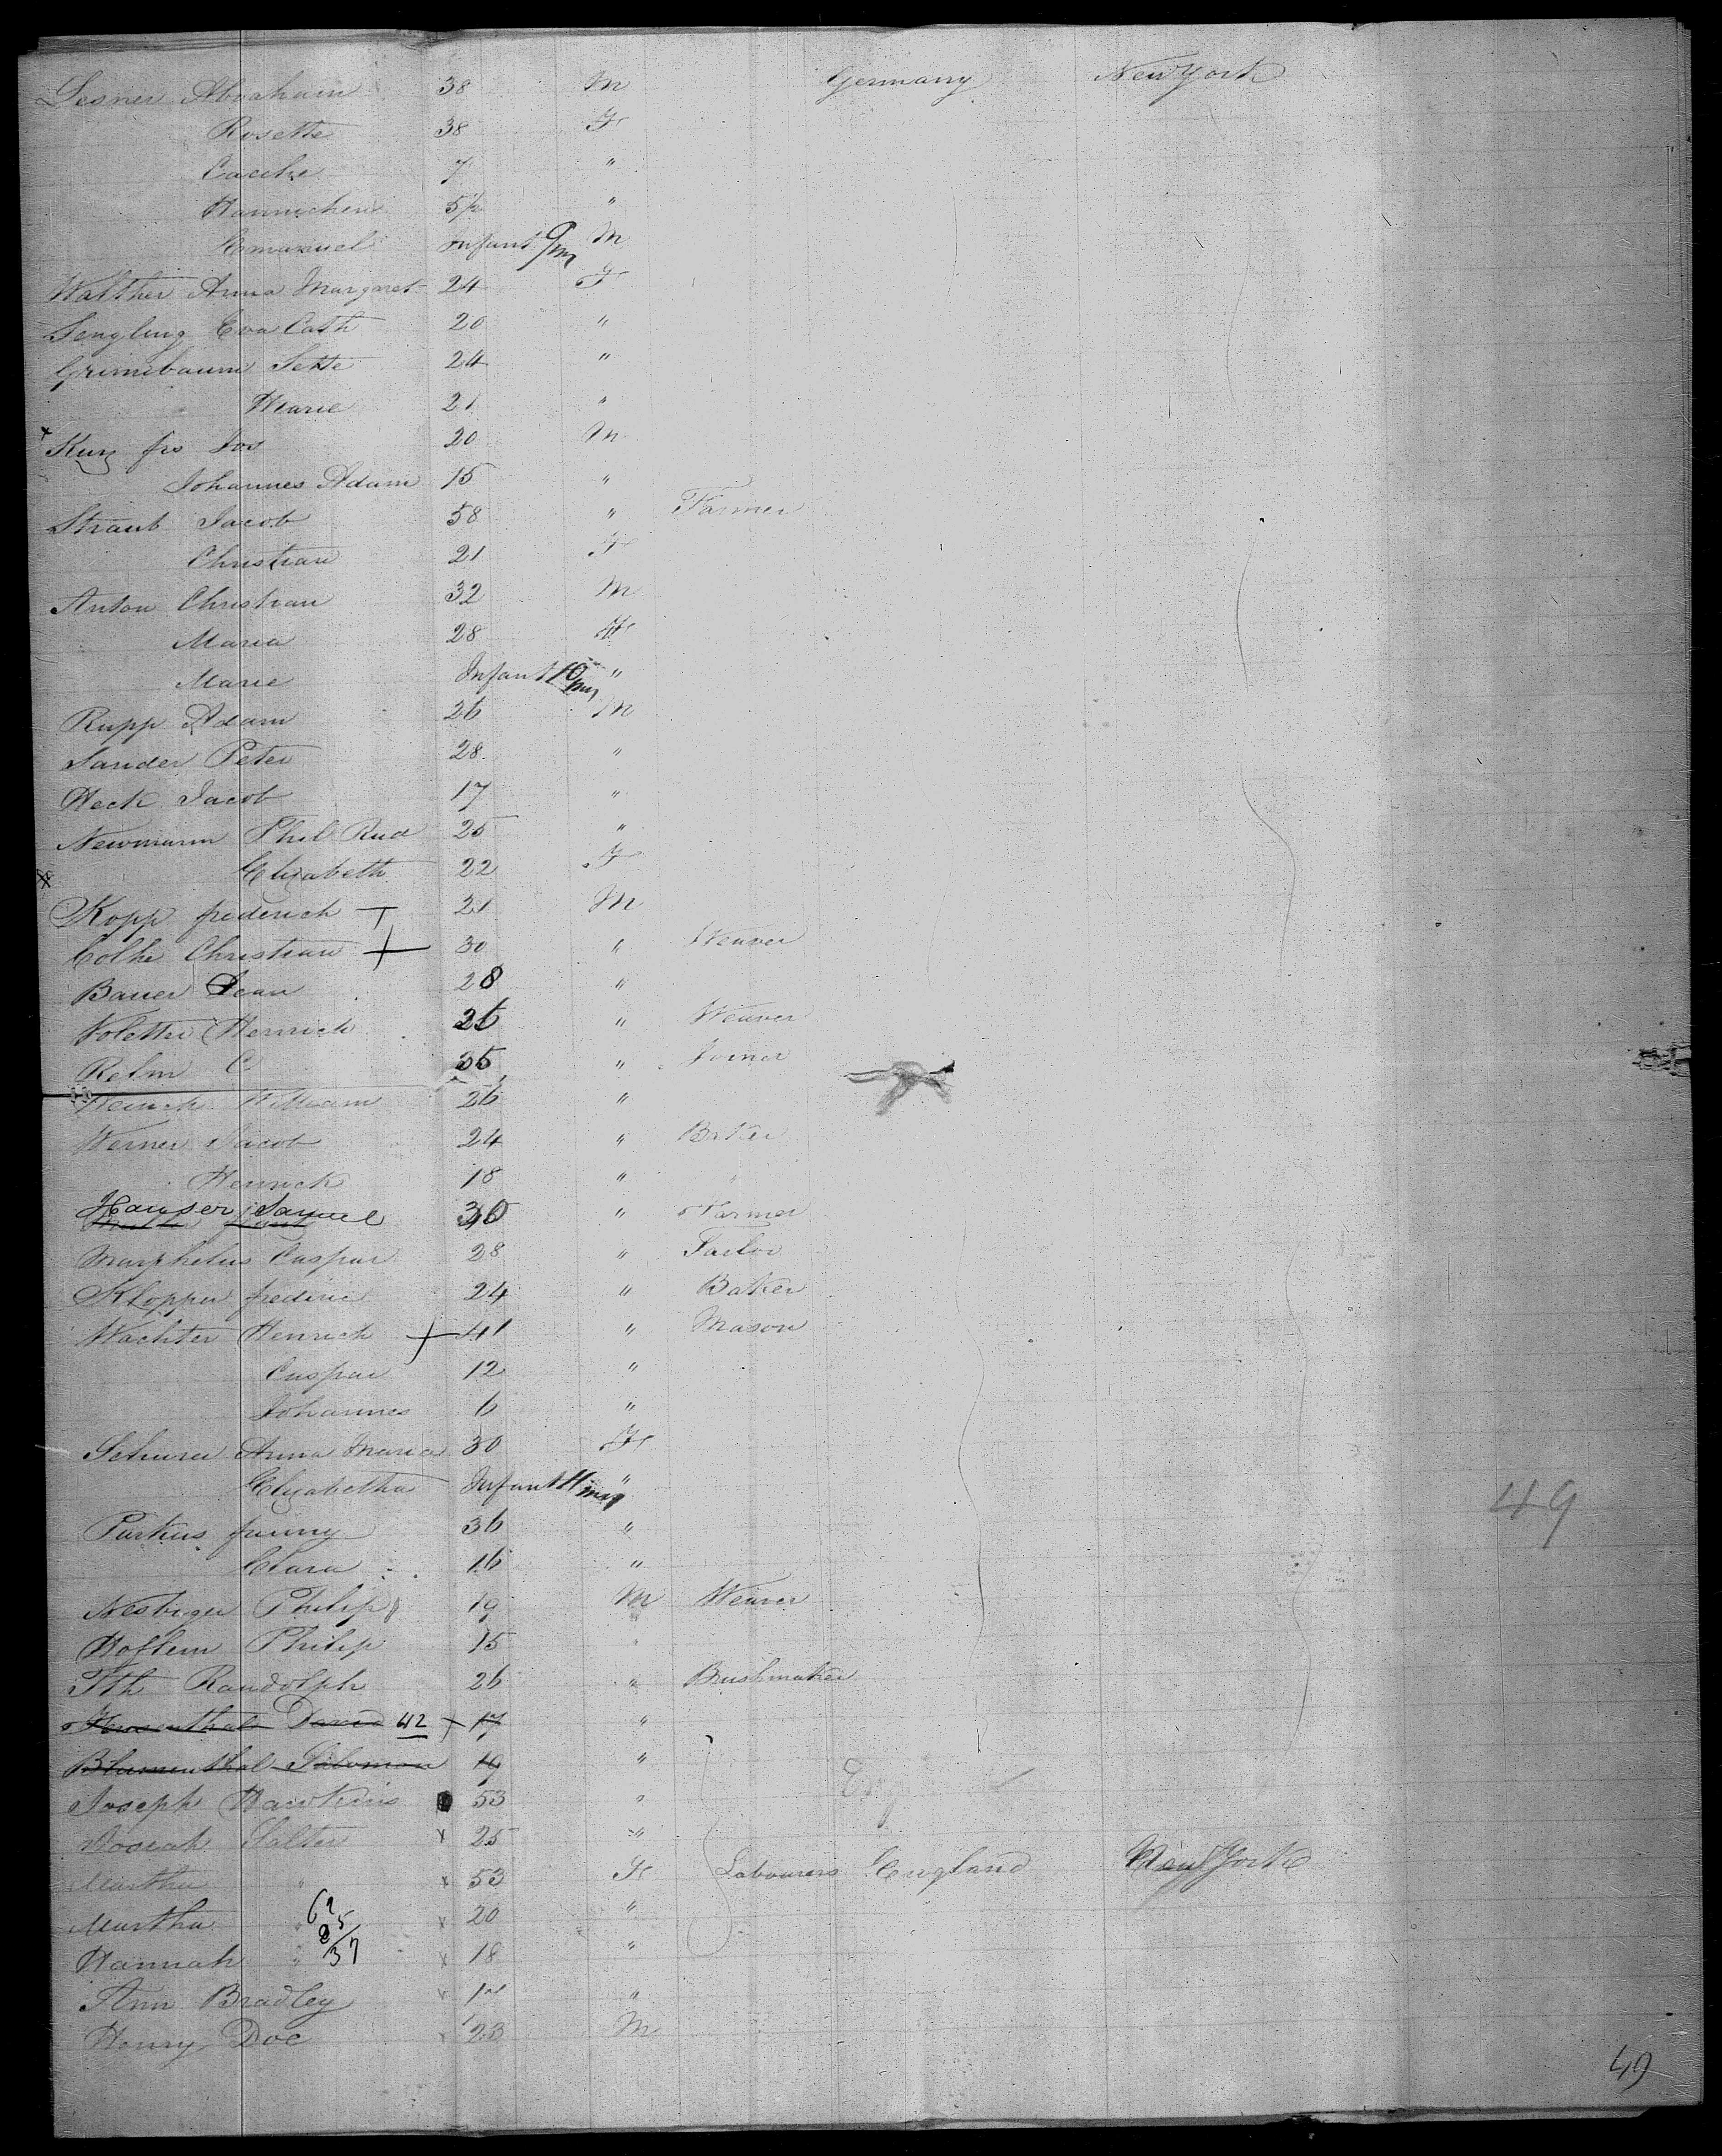 Lesner Abraham 38 M Germany New York
Rosette 38 F
7 "
Hannchen 5½ "
Emanuel Infant 9/m M
Walther Anna Margaret 24 F
Eva Cath 20 "
Grunebaum Sette 24 "
Marie 21 "
x Kunz fro Jos 20 M
Johannes Adam 15 "
Straub Jacob 58 " Farmer
Christian 21 F
Anton Christian 32 M
Maria 28 F
Marie Infant 10/m "
Rupp Adam 26 M
Sander Peter 28 "
Heck Jacob 17 "
Newmann Phil Rud 25 "
x Elizabeth 22 F
Kopp frederich 21 M
Christian + 30 " Weaver
Bauer Jean 28 "
Henrich 26 " Weaver
Relm C 35 " Joiner
William 26 "
Werner Jacob 24 " Baker
Henrich 18 " "
Hauser Samuel 30 " Farmer
Caspar 28 " Tailor
Klopper frederic 24 " Baker
Wachter Henrich + 41 " Mason
Caspar 12 "
Johannes 6 "
Anna Maria 30 F
Elizabetha Infant 11 m "
Parkus fanny 36 "
Clara 16 "
Philip 19 M Weaver
Philip 15 "
Ith Randolph 26 " Brushmaker
David 42 + 17 "
Blumenthal Salomon 19 "
Joseph Hawkins 53 " Eng
Salter x 25 "
Martha " x 53 F Labourers England New York
Martha " 62 x 20 "
25
Hannah " 37 x 18 "
Ann Bradley x "
Henry Doe x 23 M
49
49